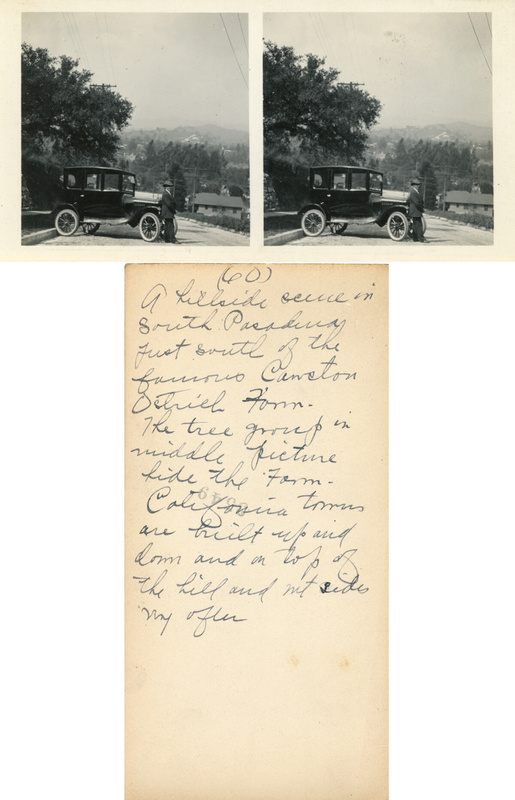 (60)
A hillside scene in
South Pasadena
just south of the
famous Cawston
Ostrich Farm.
The tree group in
middle picture
hide the Farm.
California towns
are built up and
down and on top of
the hill and mt sides
very often